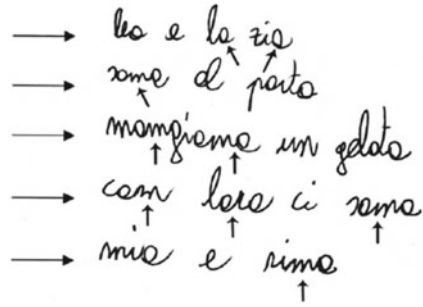 leo e la zia
soma al porto
mamgiama un gelato
com lora ci soma
mia e rima